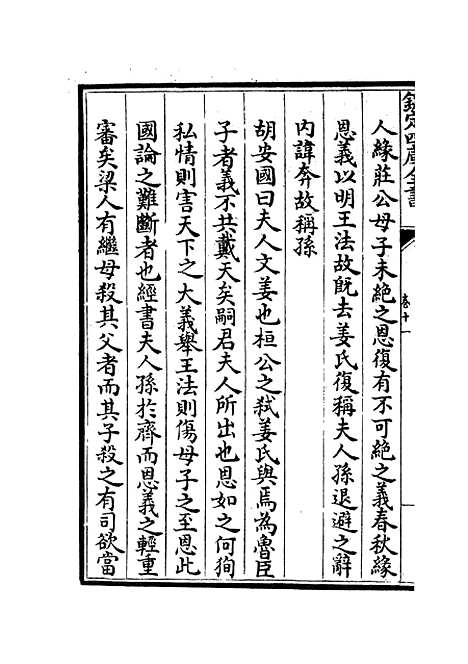 欽定四庫全書
卷十一
人緣莊公母子未絶之恩復有不可絶之義春秋緣
恩義以明王法故既去姜氏復稱夫人孫退避之辭
内諱奔故稱孫
胡安國曰夫人文姜也桓公之弑姜氏與焉為魯臣
子者義不共戴天矣嗣君夫人所出也恩如之何狥
私情則害天下之大義舉王法則傷母子之至恩此
國論之難斷者也經書夫人孫於齊而恩義之輕重
審矣梁人有繼母殺其父者而其子殺之有司欲當